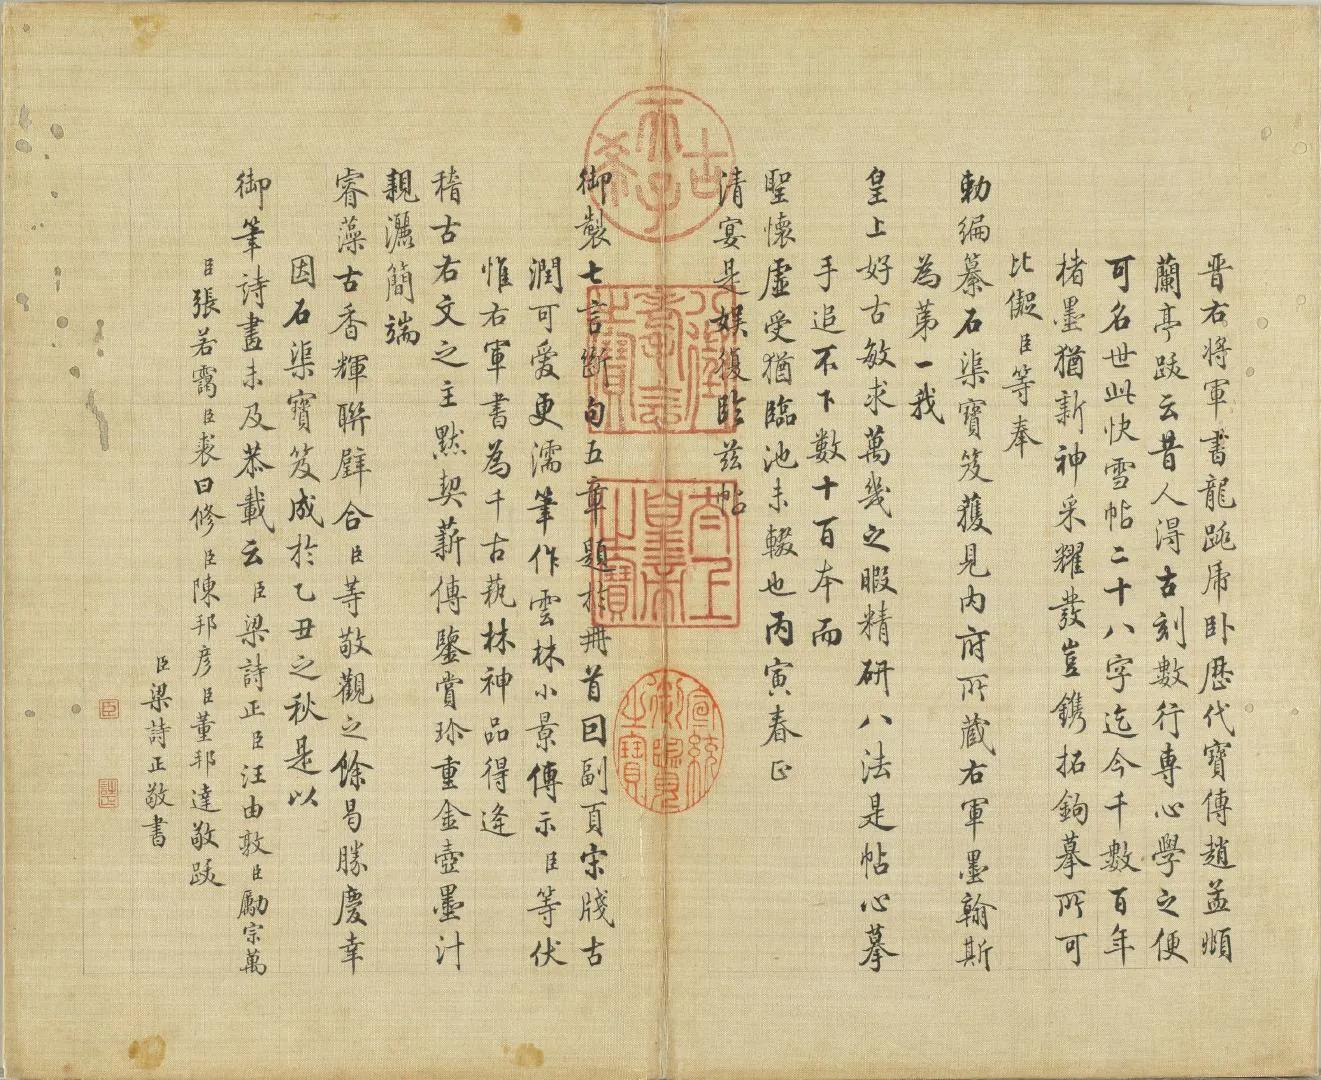 晉右將軍書龍跳虎臥歷代寶傳趙孟頫
蘭亭跋云昔人得古刻數行專心學之便
可名世此快雪帖二十八字迄今千數百年
楮墨猶新神采耀發豈鐫拓鉤摹所可
比儗臣等奉
勅編纂石渠寶笈獲見內府所藏右軍墨翰斯
為第一我
皇上好古敏求萬幾之暇精研八法是帖心摹
手追不下數十百本而
聖懷虛受猶臨池未輟也丙寅春正
清宴是娛復臨茲帖
御製七言斷句五章題於冊首回副頁宋牋古
潤可愛更濡筆作雲林小景傳示臣等伏
惟右軍書為千古蓺林神品得逢
稽古右文之主默契薪傳鑒賞珍重金壺墨汁
親灑簡端
睿藻古香輝聯璧合臣等敬觀之餘曷勝慶幸
因石渠寶笈成於乙丑之秋是以
御筆詩畫未及恭載云臣梁詩正臣汪由敦臣勵宗萬
臣張若靄臣裘曰修臣陳邦彥臣董邦達敬跋
臣梁詩正敬書
古希天子
八徵耄念之寶
太上皇帝之寶
宣統御覽之寶
臣
詩正